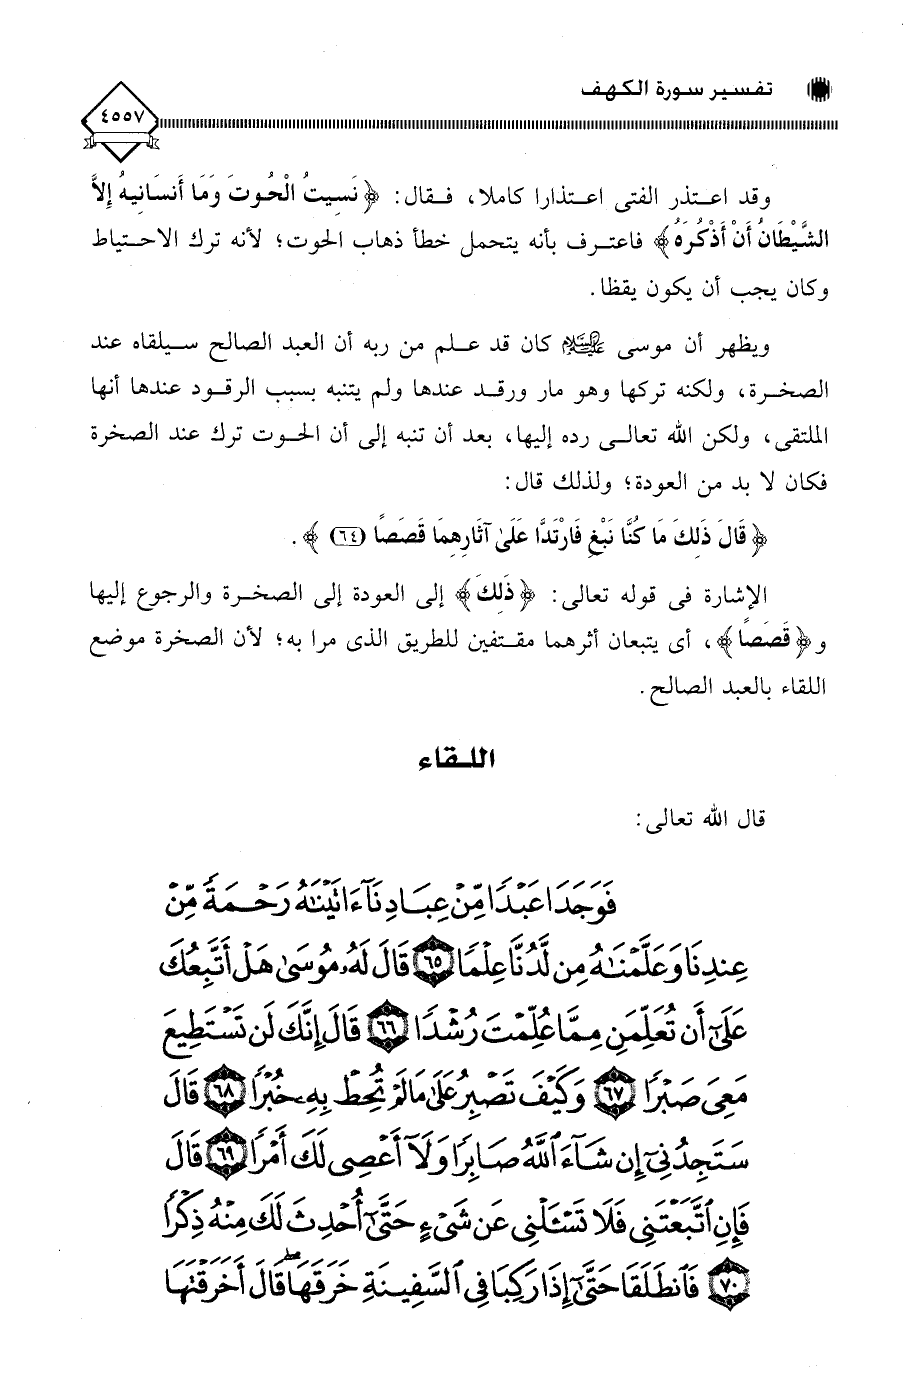 تفسير سورة الكهف
٤٥٥٧
وقد اعتذر الفتى اعتذارا كاملا، فقال: ﴿نَسِيتُ الْحُوتَ وَمَا أَنسَانِيهُ إِلاَّ
الشَّيْطَانُ أَنْ أَذْكُرَهُ﴾ فاعترف بأنه يتحمل خطأ ذهاب الحوت؛ لأنه ترك الاحتياط
وكان يجب أن يكون يقظا.
ويظهر أن موسى عليه السلام كان قد علم من ربه أن العبد الصالح سيلقاه عند
الصخرة، ولكنه تركها وهو مار ورقد عندها ولم يتنبه بسبب الرقود عندها أنها
الملتقى، ولكن الله تعالى رده إليها، بعد أن تنبه إلى أن الحوت ترك عند الصخرة
فكان لا بد من العودة؛ ولذلك قال:
﴿قَالَ ذَلِكَ مَا كُنَّا نَبْغِ فَارْتَدَّا عَلَىٰ آثَارِهِمَا قَصَصًا (٦٤)﴾.
الإشارة فى قوله تعالى: ﴿ذَلِكَ﴾ إلى العودة إلى الصخرة والرجوع إليها
و﴿قَصَصًا﴾، أى يتبعان أثرهما مقتفين للطريق الذى مرا به؛ لأن الصخرة موضع
اللقاء بالعبد الصالح.
اللقاء
قال الله تعالى:
فَوَجَدَا عَبْدًا مِّنْ عِبَادِنَآ ءَاتَيْنَٰهُ رَحْمَةً مِّنْ
عِندِنَا وَعَلَّمْنَٰهُ مِن لَّدُنَّا عِلْمًا ٦٥ قَالَ لَهُۥ مُوسَىٰ هَلْ أَتَّبِعُكَ
عَلَىٰٓ أَن تُعَلِّمَنِ مِمَّا عُلِّمْتَ رُشْدًا ٦٦ قَالَ إِنَّكَ لَن تَسْتَطِيعَ
مَعِىَ صَبْرًا ٦٧ وَكَيْفَ تَصْبِرُ عَلَىٰ مَا لَمْ تُحِطْ بِهِۦ خُبْرًا ٦٨ قَالَ
سَتَجِدُنِىٓ إِن شَآءَ ٱللَّهُ صَابِرًا وَلَآ أَعْصِى لَكَ أَمْرًا ٦٩ قَالَ
فَإِنِ ٱتَّبَعْتَنِى فَلَا تَسْـَٔلْنِى عَن شَىْءٍ حَتَّىٰٓ أُحْدِثَ لَكَ مِنْهُ ذِكْرًا
٧٠ فَٱنطَلَقَا حَتَّىٰٓ إِذَا رَكِبَا فِى ٱلسَّفِينَةِ خَرَقَهَا ۖ قَالَ أَخَرَقْتَهَا